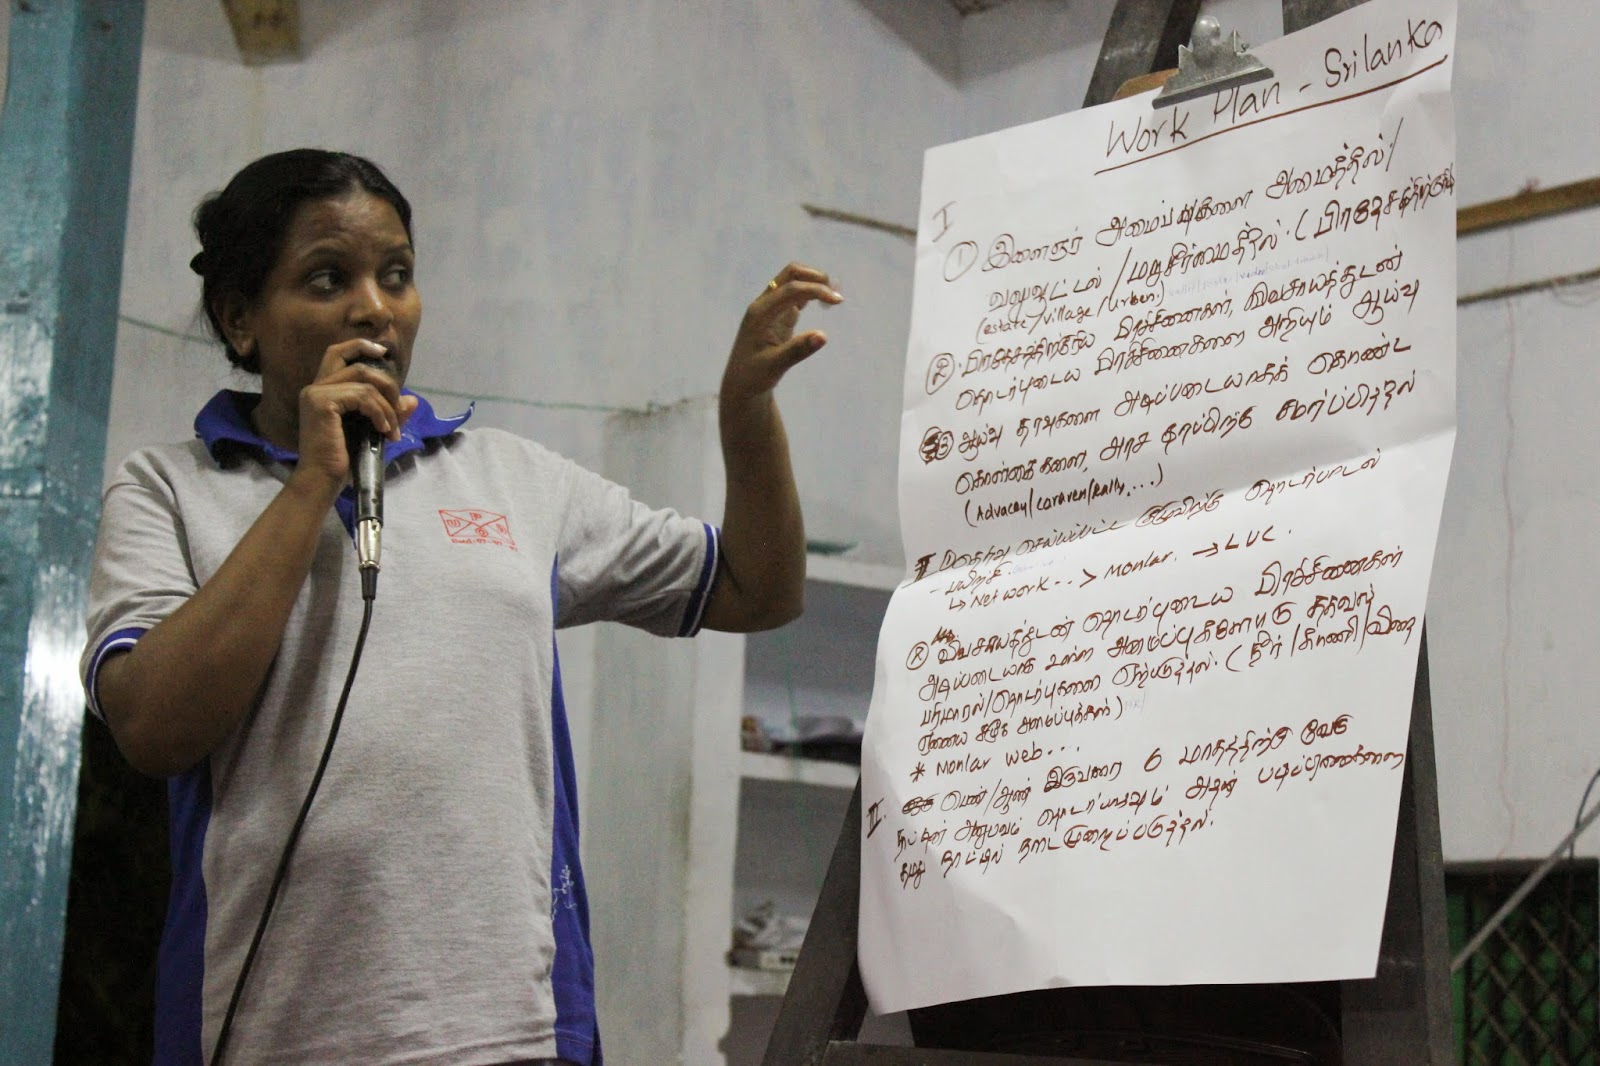 Work Plan - Srilanka
I
① இளைஞர் அமைப்புகளை அமைத்தல்/
வலுவூட்டல் /மறுசீரமைத்தல். (பிரதேசத்திற்குள்
(estate/village/urban.)
② பிரதேசத்திற்குரிய பிரச்சினைகள், விவசாயத்துடன்
தொடர்புடைய பிரச்சினைகளை அறியும் ஆய்வு
③ ஆய்வு தரவுகளை அடிப்படையாகக் கொண்ட
கொள்கைகளை, அரச தரப்பிற்கு சமர்ப்பித்தல்
(Advacey/caraven/Rally,...)
II தெரிவு செய்யப்பட்ட குழுவிற்கு தொடர்பாடல்
- பயிற்சி
↳ Network --> Monlar. → LUC.
விவசாயத்துடன் தொடர்புடைய பிரச்சினைகள்
அடிப்படையாக உள்ள அமைப்புகளோடு தகவல்
பரிமாறல்/தொடர்புகளை ஏற்படுத்தல். (நீர்/காணி/விதை
ஏனைய சமூக அமைப்புக்கள்)
* Monlar web...
III. பெண்/ஆண் இருவரை 6 மாதத்திற்கு வேறு
நாட்டின் அனுபவம் தொடர்பாகவும் அதன் படிப்பினைகளை
எமது நாட்டில் நடைமுறைப்படுத்தல்.